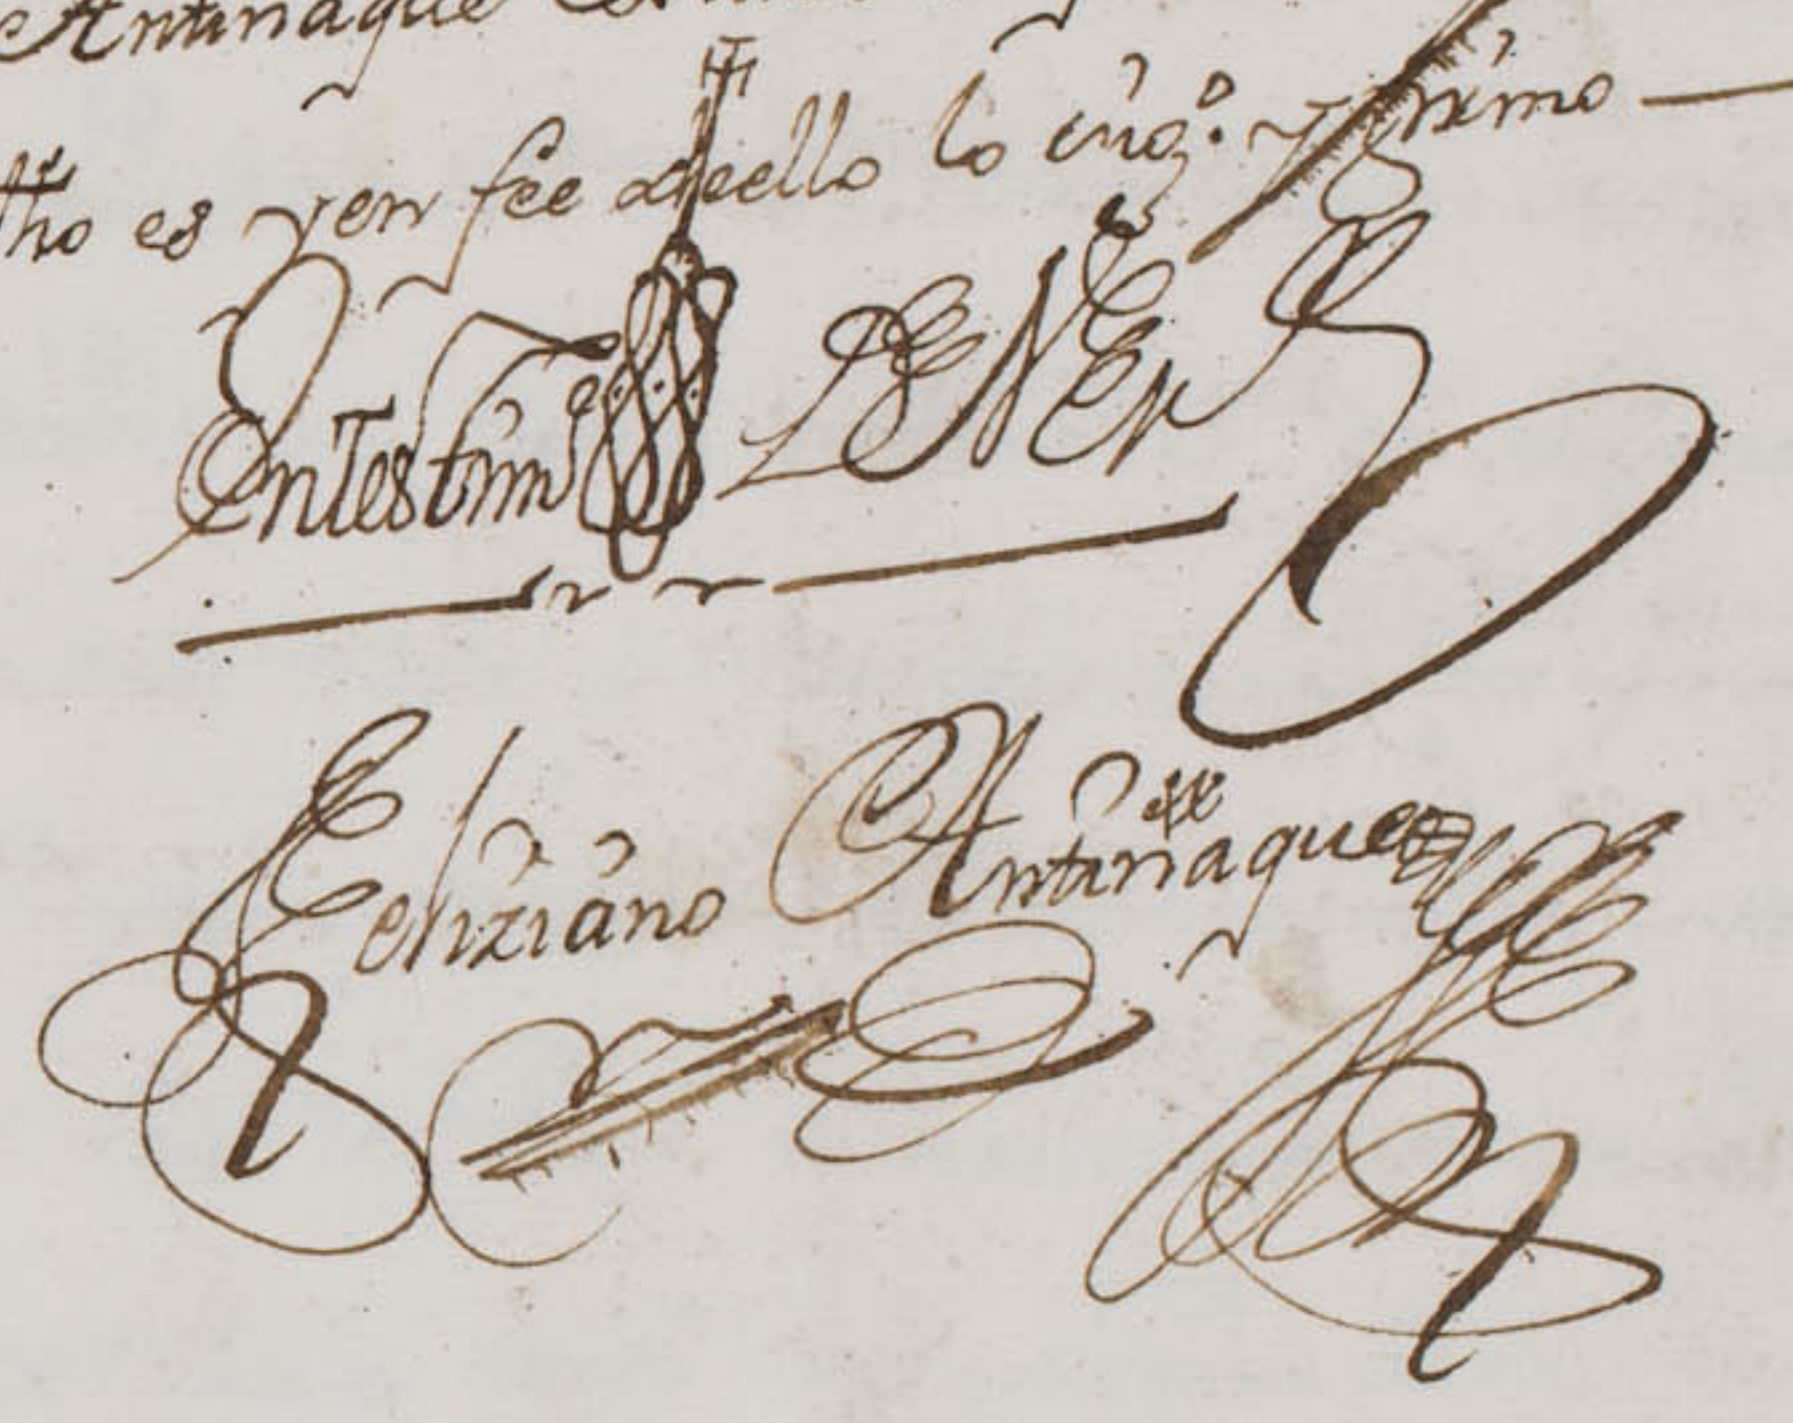 Antiñaque
dho es y en fee de ello lo signo y firmo
En Testimo DE VER
Feliziano Antiñaque